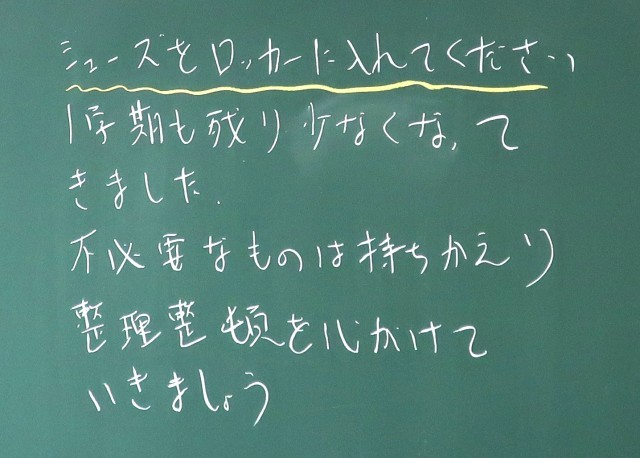 シューズをロッカーに入れてください
1学期も残り少なくなって
きました.
不必要なものは持ちかえり
整理整頓を心がけて
いきましょう